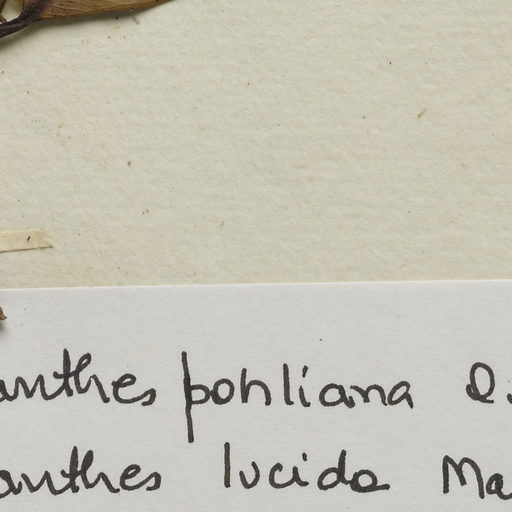 anthes pohliana D.
anthes lucida Ma